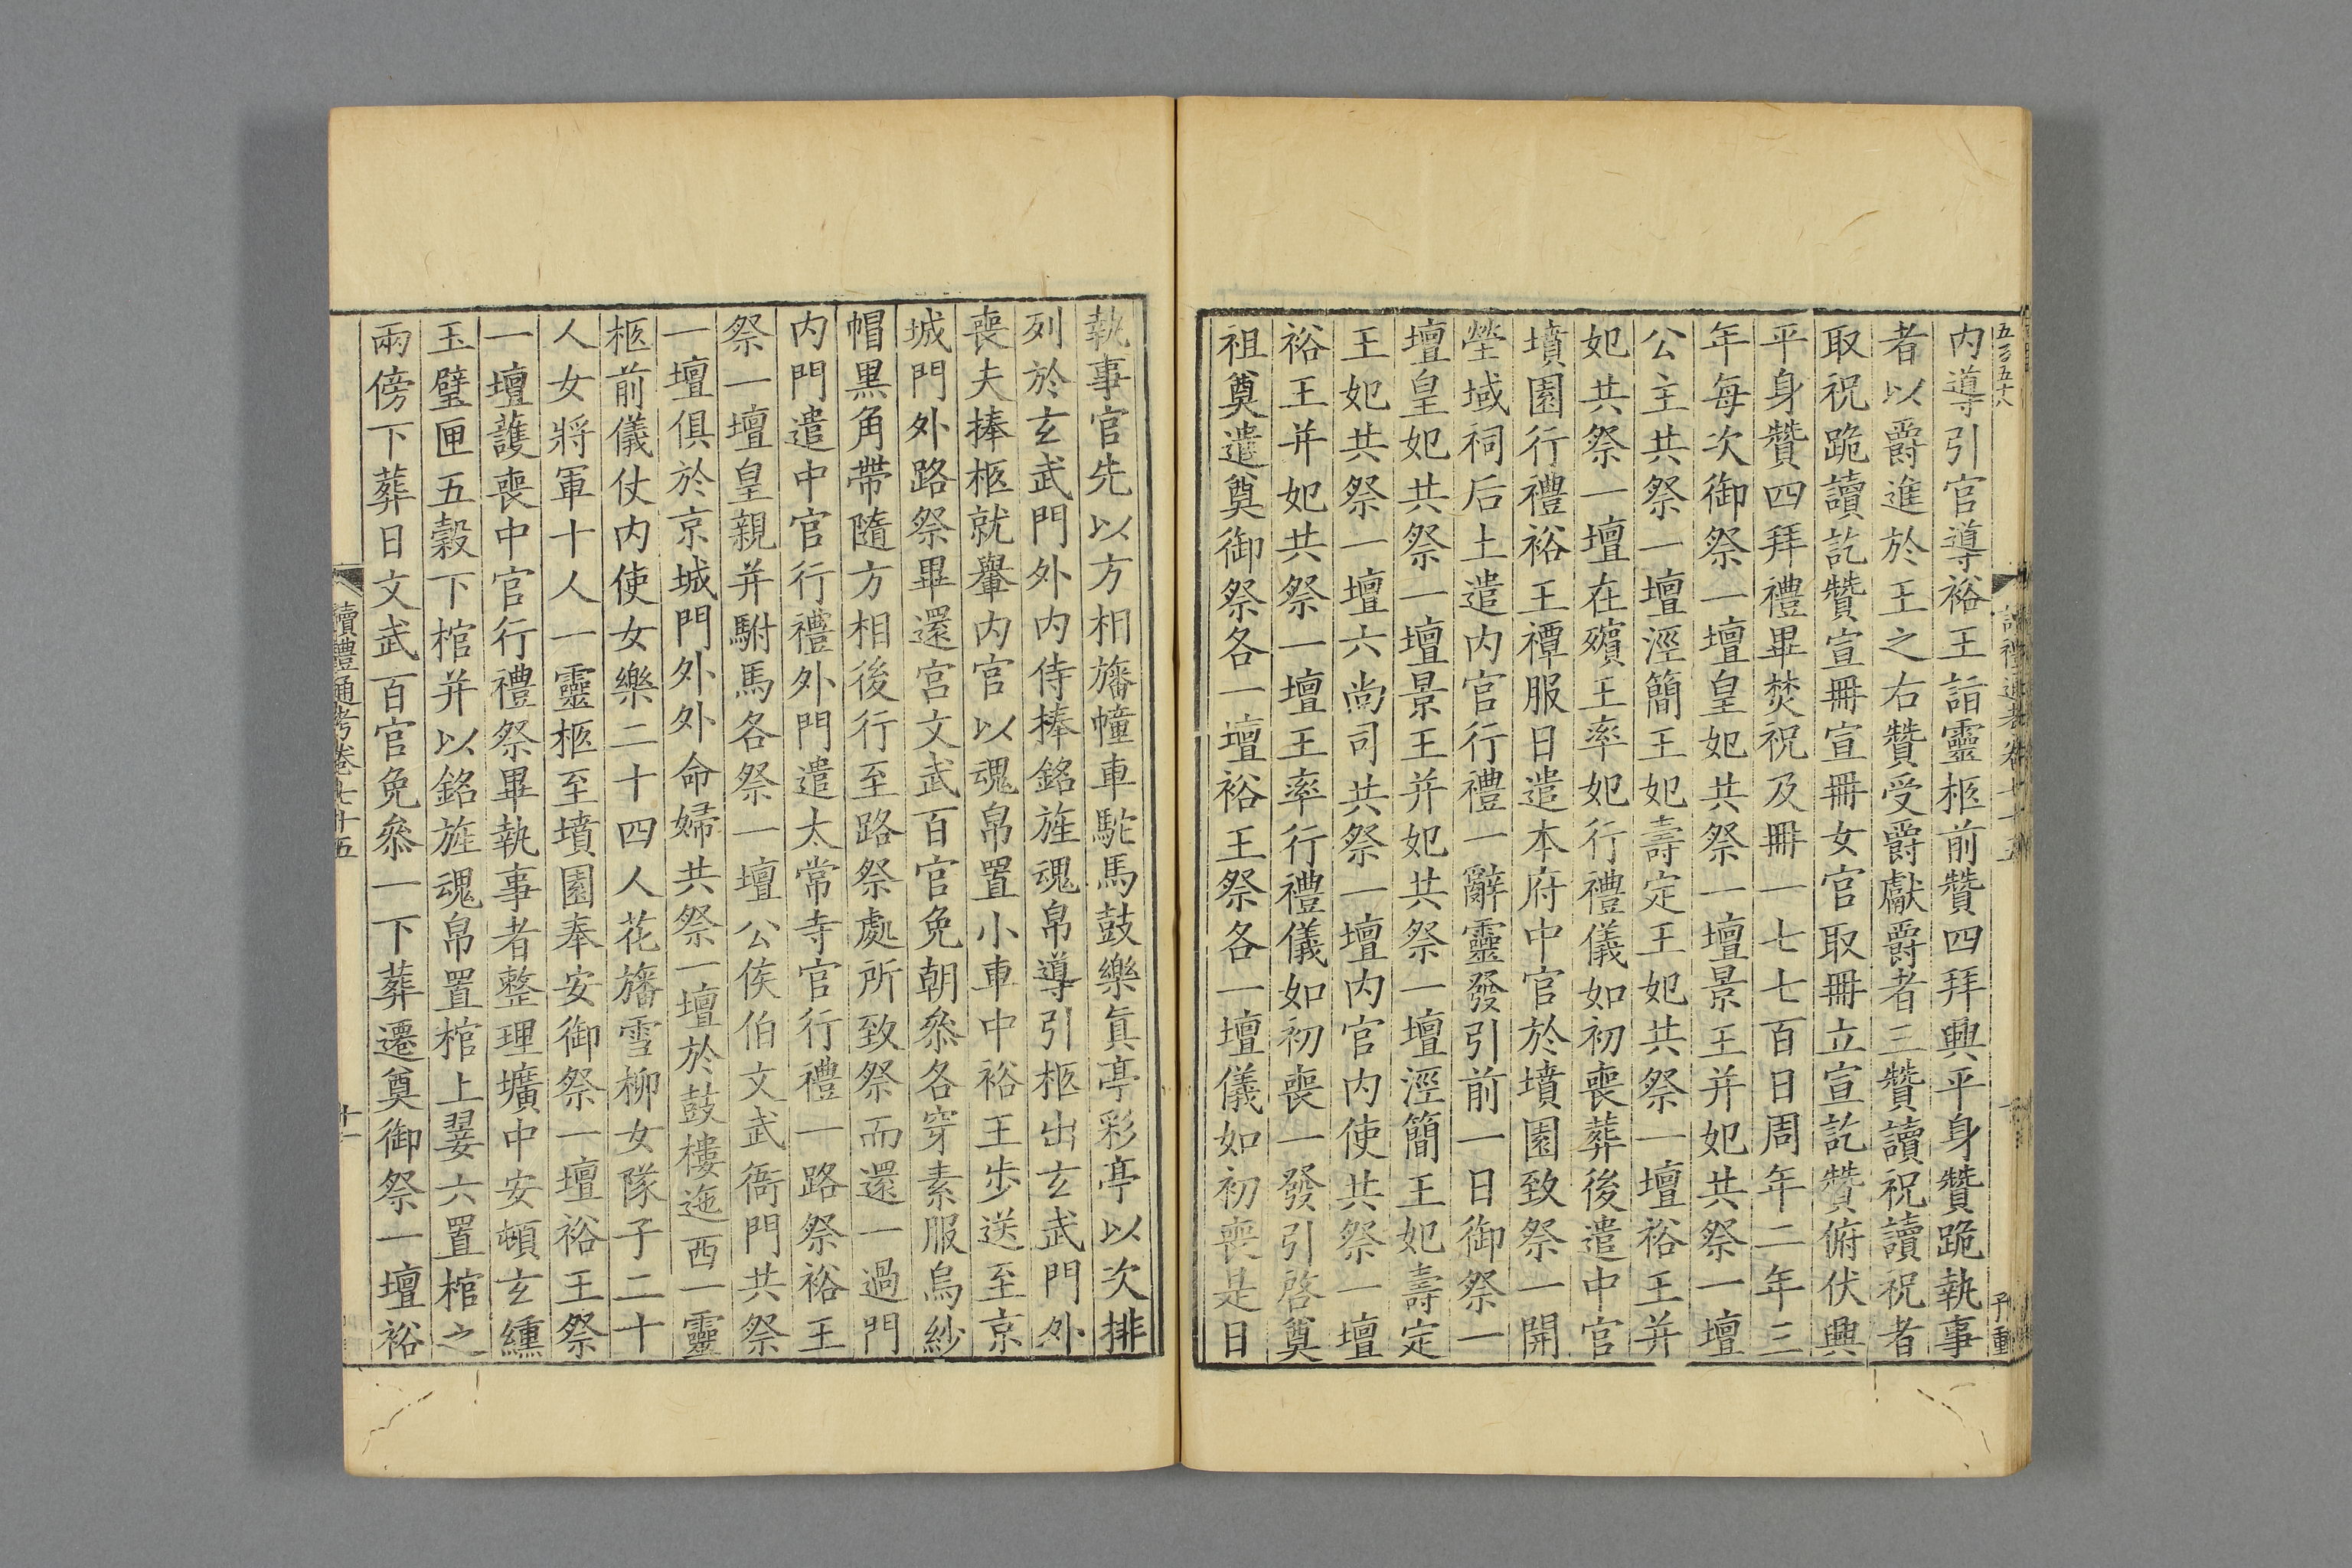 內導引官導裕王詣靈柩前贊四拜興平身贊跪執事
者以爵進於王之右贊受爵獻爵者三贊讀祝讀祝者
取祝跪讀訖贊宣冊宣冊女官取冊立宣訖贊俯伏興
平身贊四拜禮畢焚祝及冊一七七百日周年二年三
年每次御祭一壇皇妃共祭一壇景王并妃共祭一壇
公主共祭一壇涇簡王妃壽定王妃共祭一壇裕王并
妃共祭一壇在殯王率妃行禮儀如初喪葬後遣中官
墳園行禮裕王禫服日遣本府中官於墳園致祭一開
塋域祠后土遣內官行禮一辭靈發引前一日御祭一
壇皇妃共祭一壇景王并妃共祭一壇涇簡王妃壽定
王妃共祭一壇六尚司共祭一壇內官內使共祭一壇
裕王并妃共祭一壇王率行禮儀如初喪一發引啓奠
祖奠遣奠御祭各一壇裕王祭各一壇儀如初喪是日
執事官先以方相旛幢車駝馬鼓樂眞亭彩亭以次排
列於玄武門外內侍捧銘旌魂帛導引柩出玄武門外
喪夫捧柩就轝內官以魂帛置小車中裕王步送至京
城門外路祭畢還宮文武百官免朝叅各穿素服烏紗
帽黑角帶隨方相後行至路祭處所致祭而還一過門
內門遣中官行禮外門遣太常寺官行禮一路祭裕王
祭一壇皇親并駙馬各祭一壇公侯伯文武衙門共祭
一壇俱於京城門外外命婦共祭一壇於鼓樓迤西一靈
柩前儀仗內使女樂二十四人花旛雪柳女隊子二十
人女將軍十人一靈柩至墳園奉安御祭一壇裕王祭
一壇護喪中官行禮祭畢執事者整理壙中安頓玄纁
玉璧匣五穀下棺并以銘旌魂帛置棺上翣六置棺之
兩傍下葬日文武百官免叅一下葬遷奠御祭一壇裕
讀禮通考卷七十五
十一